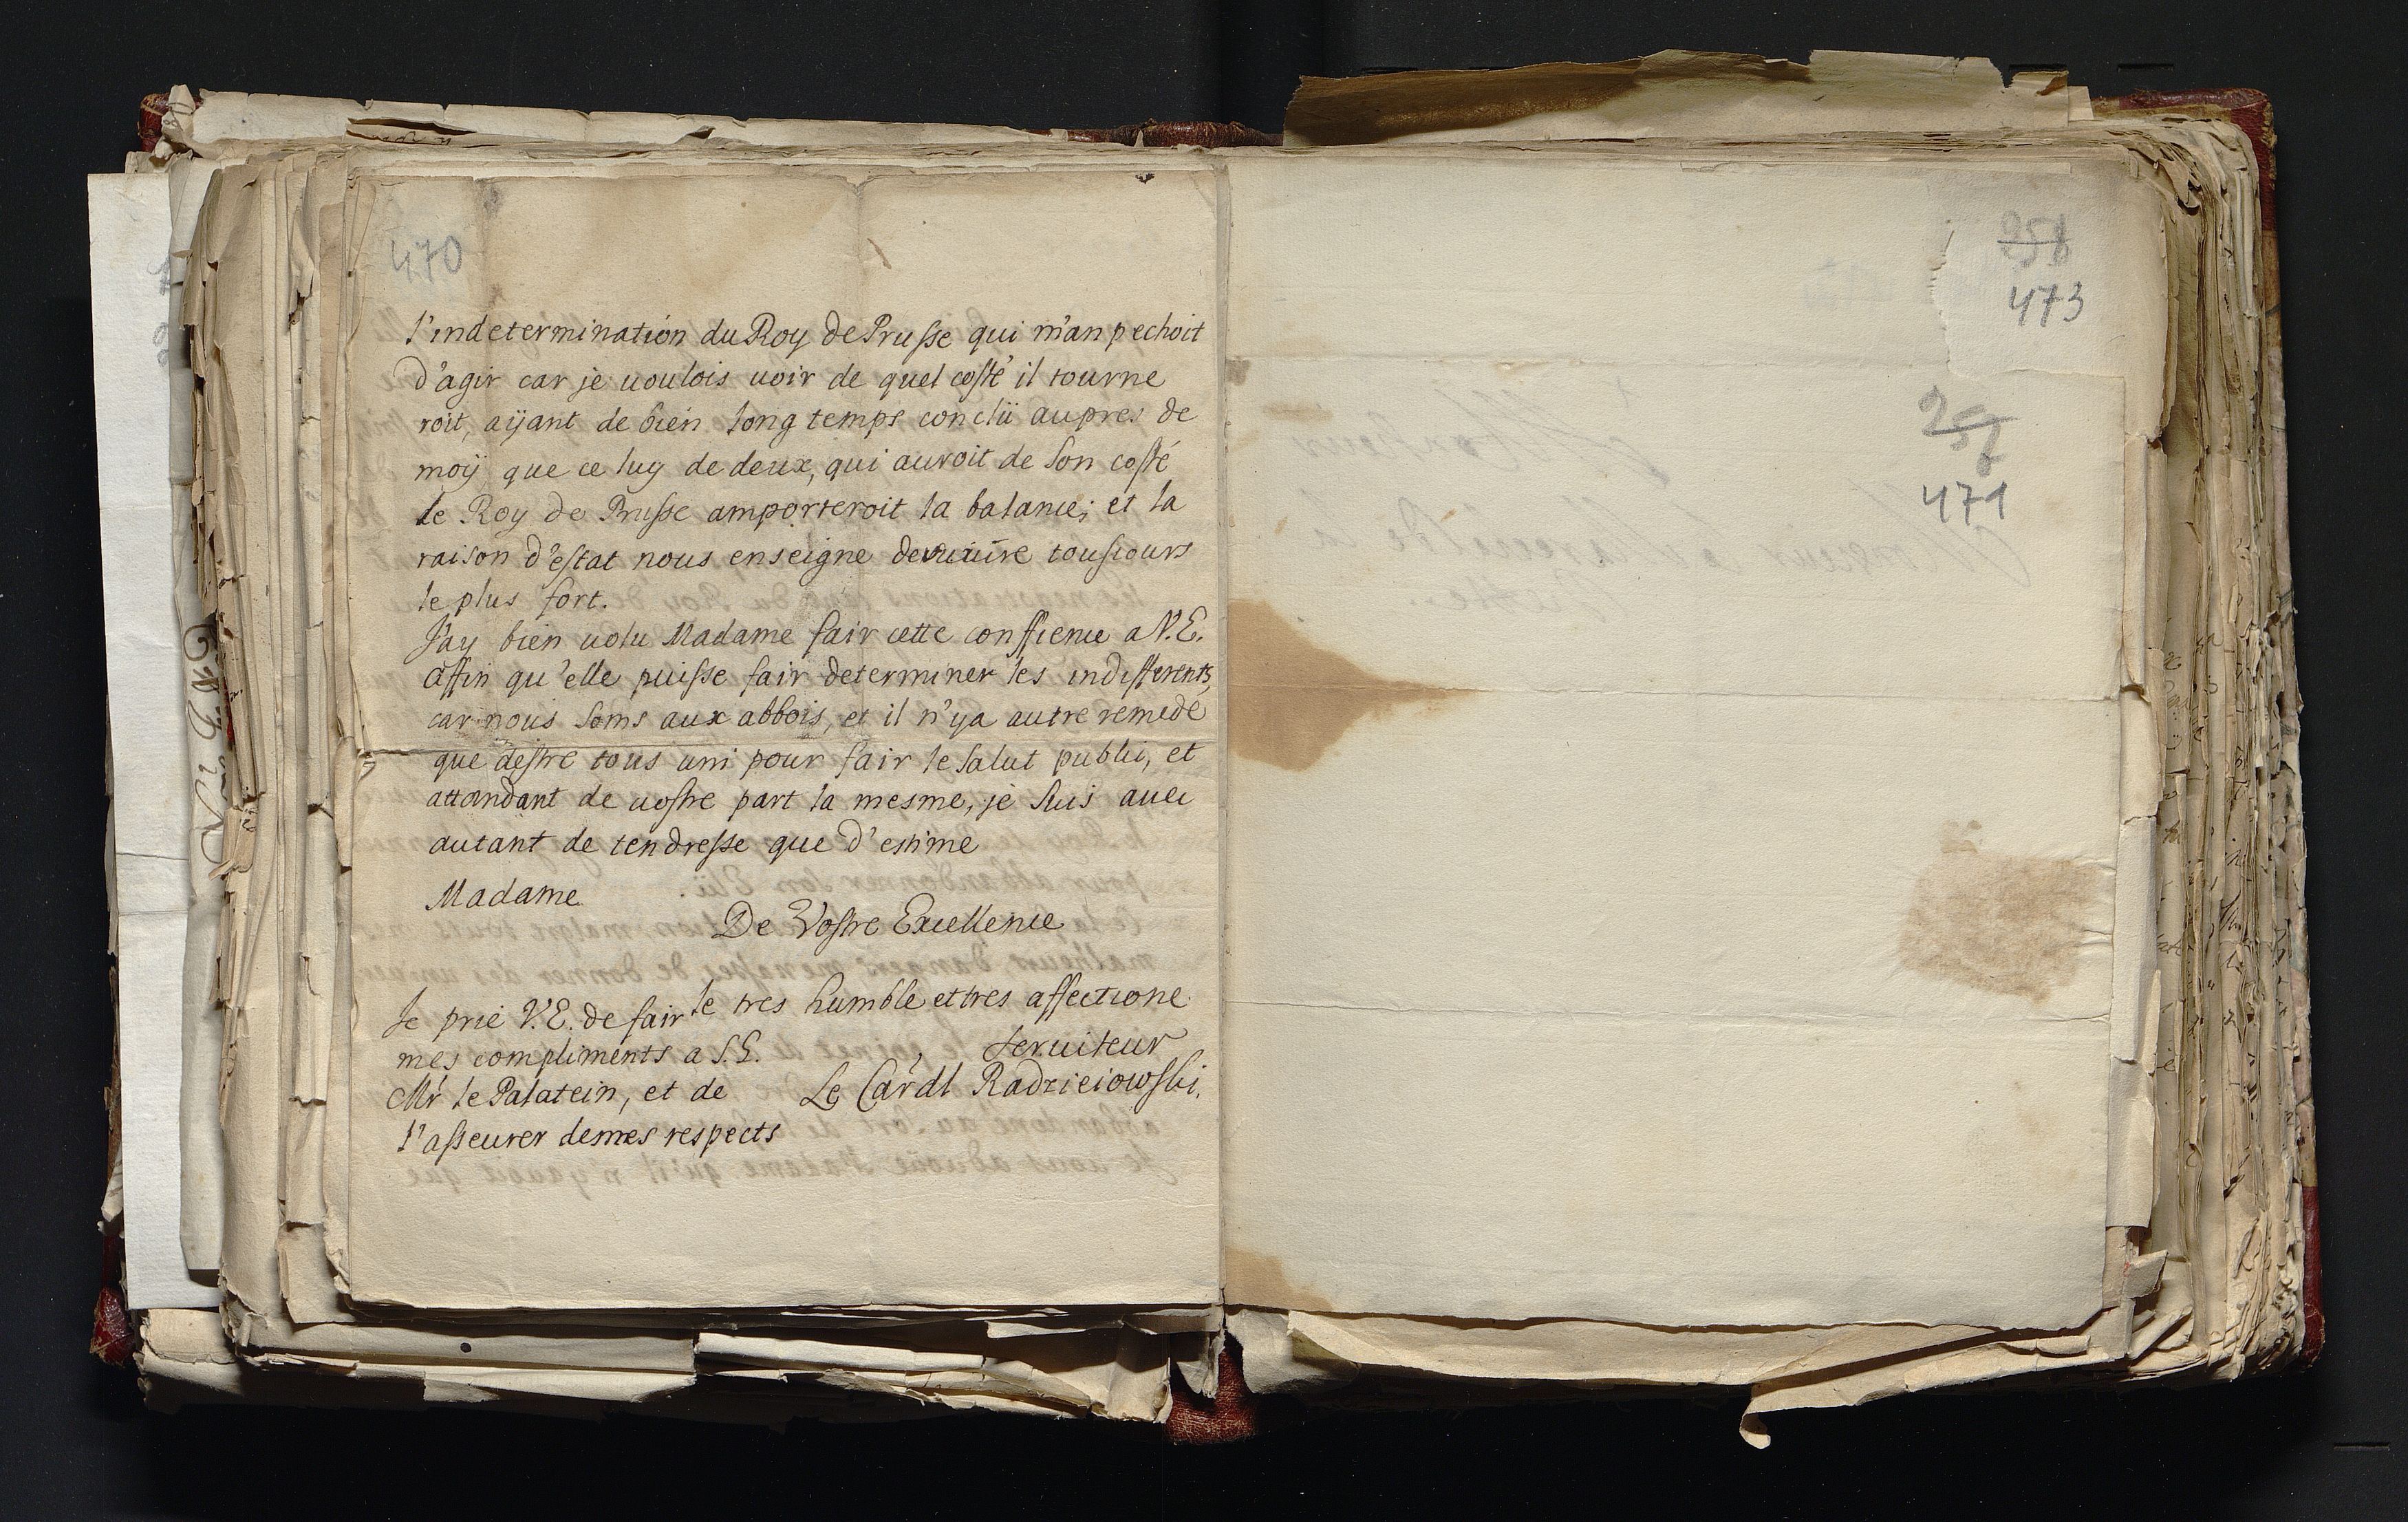 470
l'indetermination du Roy de Prusse qui m'anpechoit
d'agir car je uoulois uoir de quel costé il tourne
roit, aÿant de bien long temps conclü aupres de
moÿ que ce luy de deux, qui auroit de son costé
le Roy de Prusse amporteroit la balance; et la
raison d'estat nous enseigne de suiure tousiours
le plus fort.
J'ay bien uolu Madame fair cette confience a V.E.
affin qu'elle puisse fair determiner les indifferents,
car nous soms aux abbois, et il n'ya autre remede
que d'estre tous uni pour fair le salut publi, et
attandant de uostre part la mesme, je suis auec
autant de tendresse que d'estime
Madame
De Vostre Excellence
le tres humble et tres affectione
seruiteur
Le Cardl Radzieiowski.
Je prie V.E. de fair
mes compliments a S.E.
Mr le Palatein, et de
l'asseurer de mes respects
258
473
471